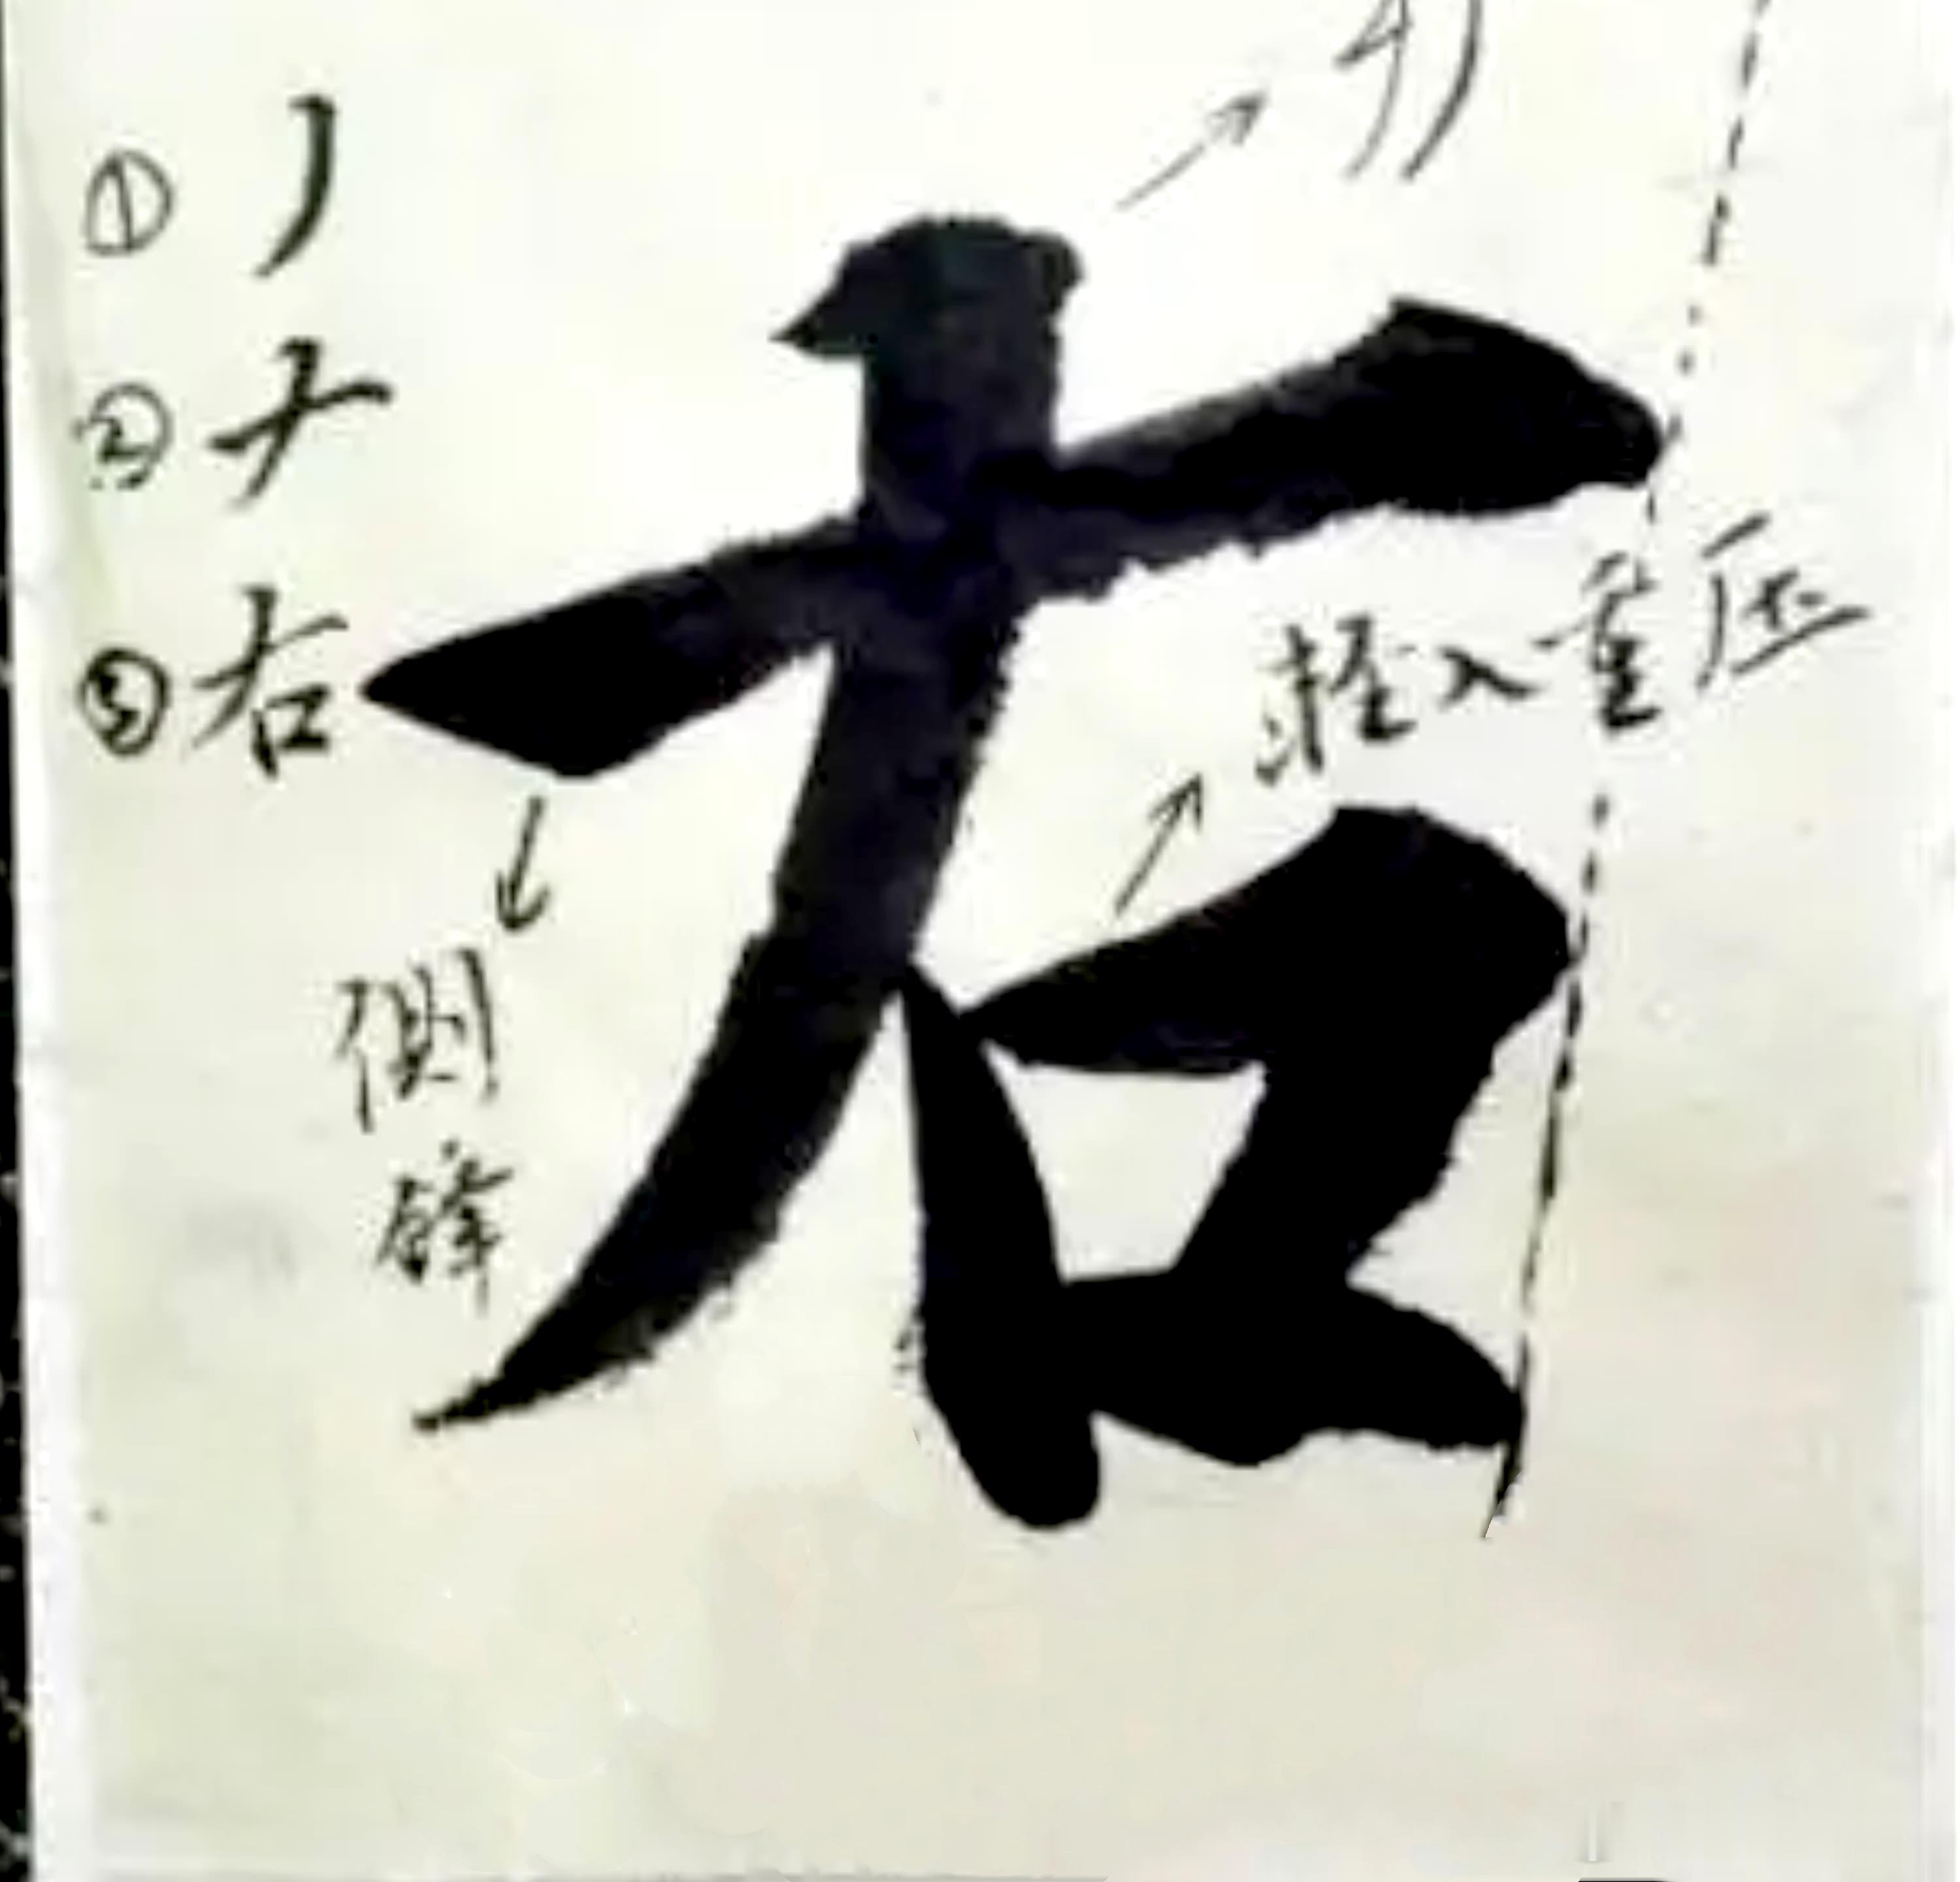 ① 丿
② ナ
③ 右
右
轻入重压
侧
锋